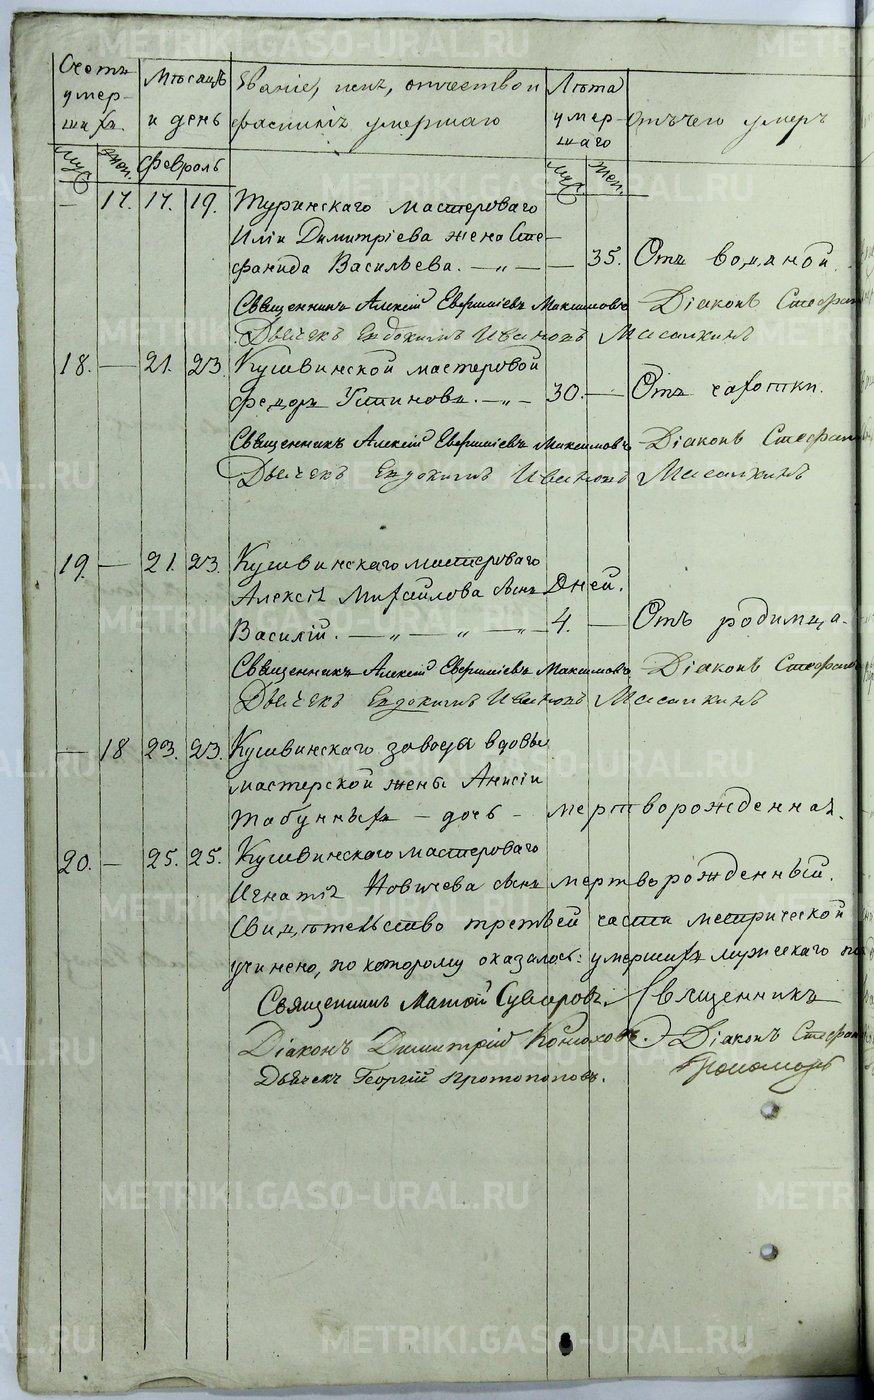 Счетъ умер-шихъ.
Мѣсяцъ и день
Званіе, имя, отчество и фамилія умершаго
Лѣта умер-шаго
Отъ чего умеръ
Муж. Жен. Февраль Муж. Жен.
— 17. 17. 19. Туринскаго мастероваго
Иліи Димитріева жена Сте-
фанида Васильева. — „ — — 35. Отъ водяной.
Священникъ Алексій Евфиміевъ Максимовъ Діаконъ Стефан
Дьячекъ Евдокимъ Ивановъ Масалкинъ
18. — 21. 23. Кушвинской мастеровой
Федоръ Устиновъ. — „ — 30. — Отъ чахотки.
Священникъ Алексій Евфиміевъ Максимовъ Діаконъ Стефан
Дьячекъ Евдокимъ Ивановъ Масалкинъ
19. — 21. 23. Кушвинскаго мастероваго
Алексія Михайлова сынъ Дней.
Василій. — „ — „ — „ — 4. — Отъ родимца.
Священникъ Алексій Евфиміевъ Максимовъ Діаконъ Стефан
Дьячекъ Евдокимъ Ивановъ Масалкинъ
— 18 23. 23. Кушвинскаго завода вдовы
мастерской жены Анисіи
Табунныхъ — дочь - мертворожденная.
20. — 25. 25. Кушвинскаго мастероваго
Игнатія Новичева сынъ мертворожденный.
Свидѣтельство третьей части метрической
учинено, по которому оказалось: умершихъ мужескаго по
Священникъ Матѳей Суворовъ. Священникъ
Діаконъ Димитрій Конюховъ. Діаконъ Стефан
Дьячекъ Георгій Протопоповъ. Пономарь
METRIKI.GASO-URAL.RU